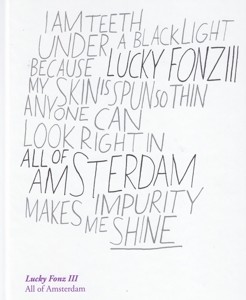 I AM TEETH
UNDER, A BLACKLIGHT
BECAUSE LUCKY FONZ III
MY SKIN IS SPUN SO THIN
ANYONE CAN
LOOK RIGHT IN
ALL OF AMSTERDAM
MAKES IMPURITY
ME SHINE
Lucky Fonz III
All of Amsterdam